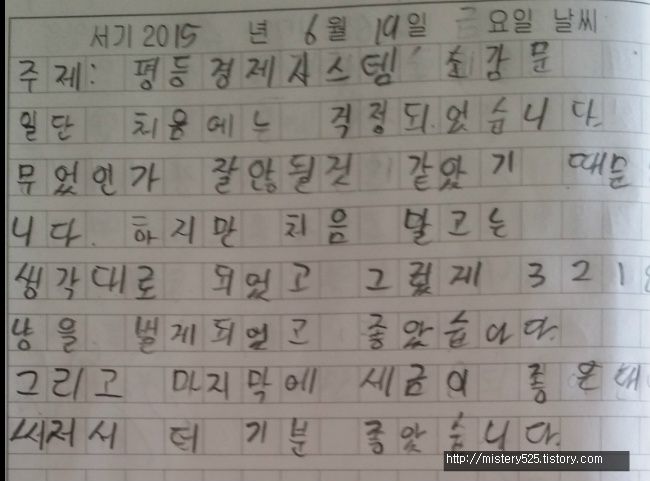 서기 2015 년 6월 19일 금요일 날씨
주제: 평등경제시스템 소감문
일단 처음에는 걱정되었습니다.
무었인가 잘않될것 같았기 때문
니다. 하지만 처음 말고는
생각대로 되었고 그렇게 3218
냥을 벌게되었고 좋았습니다.
그리고 마지막에 세금이 좋은데
써저서 더 기분 좋았습니다.
http://mistery525.tistory.com